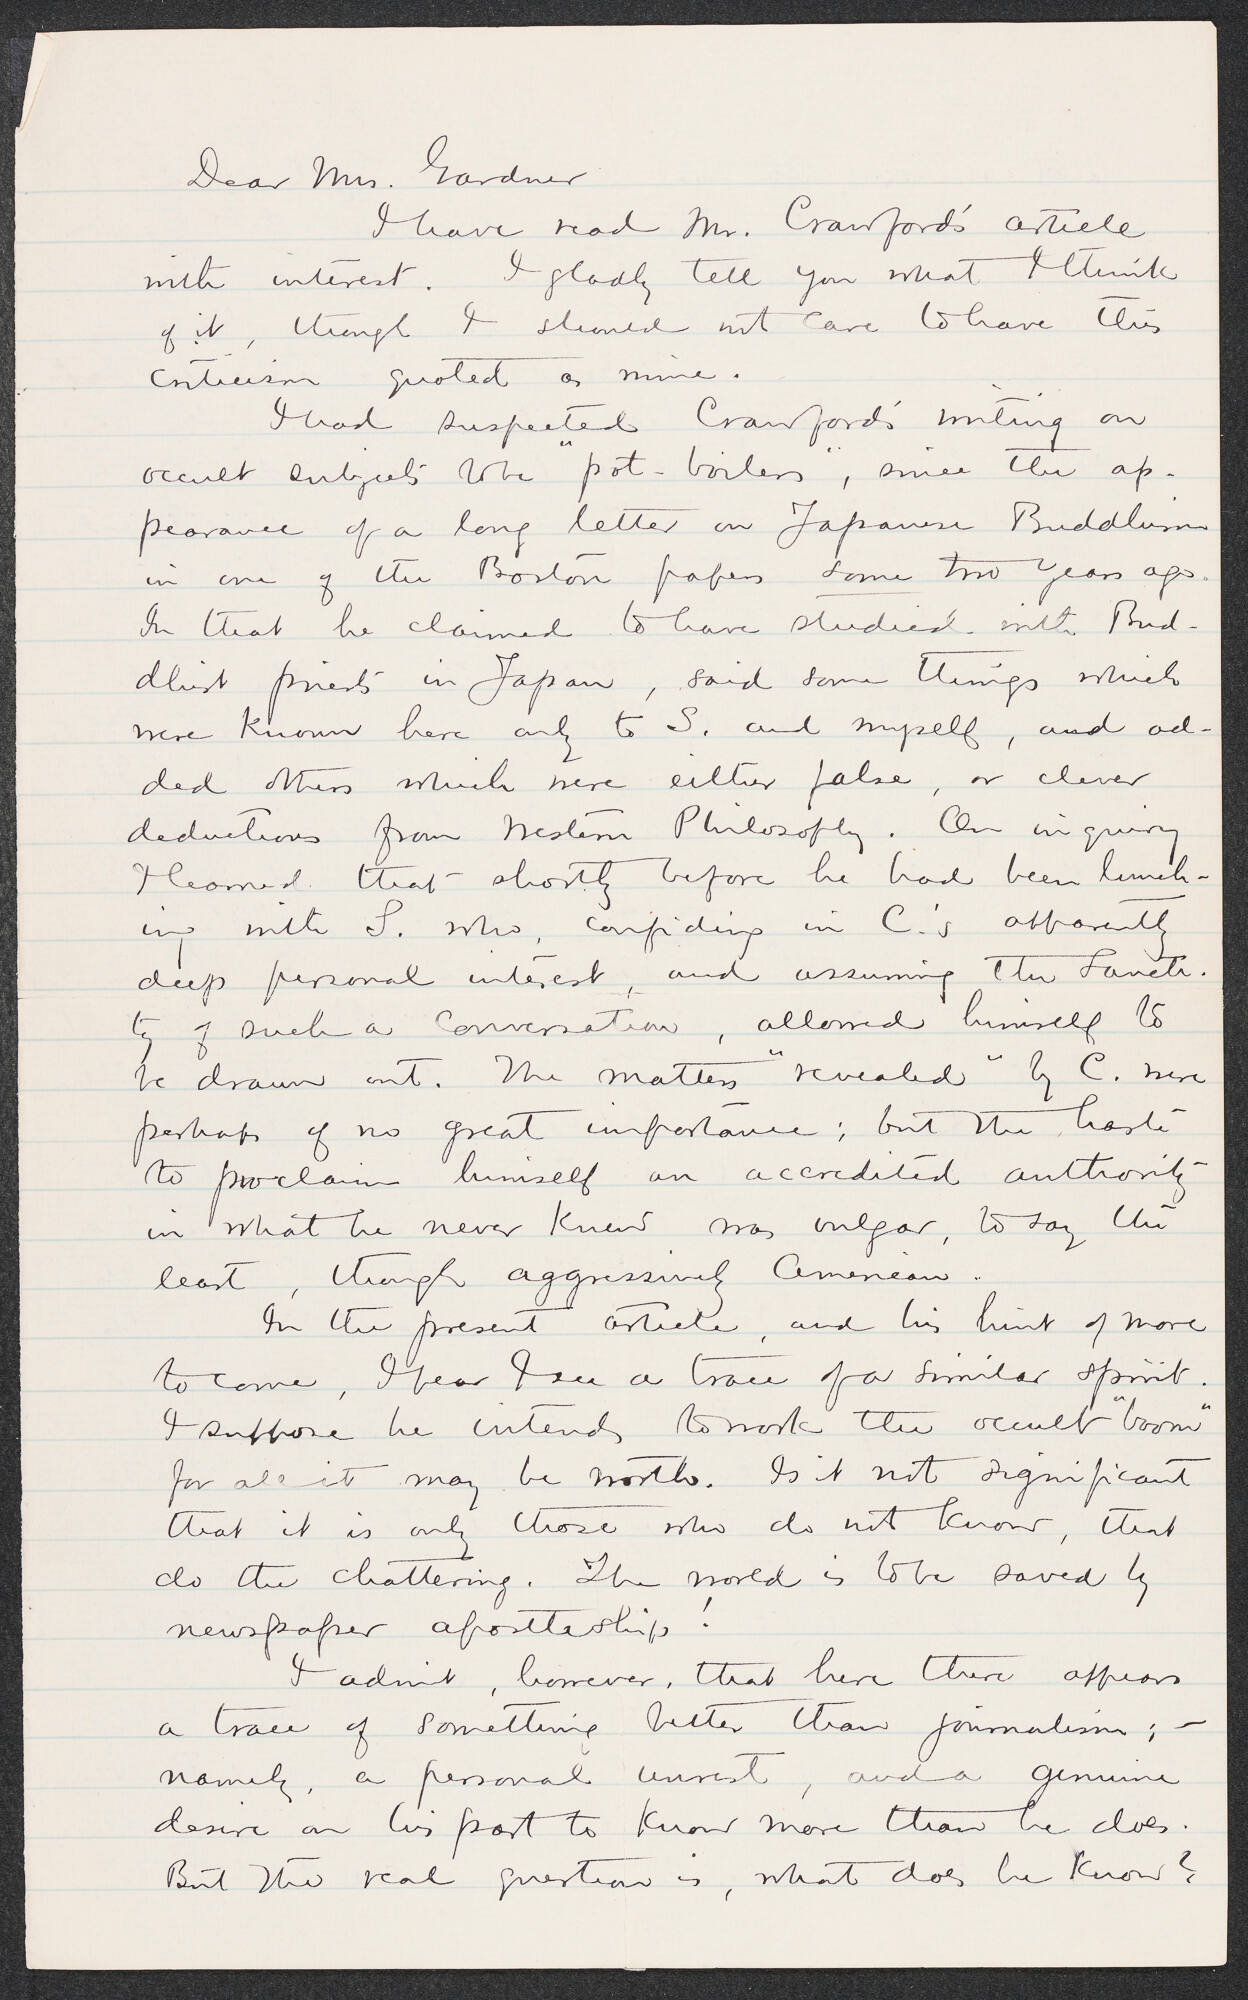 Dear Mrs. Gardner
I have read Mr. Crawford's article
with interest. I gladly tell you what I think
of it, though I should not care to have this
criticism quoted as mine.
I had suspected Crawford's writing on
occult subjects to be "pot-boilers", since the ap-
pearance of a long letter on Japanese Buddhism
in one of the Boston papers some two years ago.
In that he claimed to have studied with Bud-
dhist priests in Japan, said some things which
were known here only to S. and myself, and ad-
ded others which were either false, or clever
deductions from Western Philosophy. On inquiry
I learned that shortly before he had been lunch-
ing with S. who, confiding in C.'s apparently
deep personal interest, and assuming the sancti-
ty of such a conversation, allowed himself to
be drawn out. The matters "revealed" by C. were
perhaps of no great importance; but the haste
to proclaim himself an accredited authority
in what he never knew was vulgar, to say the
least, though aggressively American.
In the present article, and his hint of more
to come, I fear I see a trace of a similar spirit.
I suppose he intends to work the occult "boom"
for all it may be worth. Is it not significant
that it is only those who do not know, that
do the chattering. The world is to be saved by
newspaper apostleship!
I admit, however, that here there appears
a trace of something better than journalism; –
namely, a personal unrest, and a genuine
desire on his part to know more than he does.
But the real question is, what does he know?